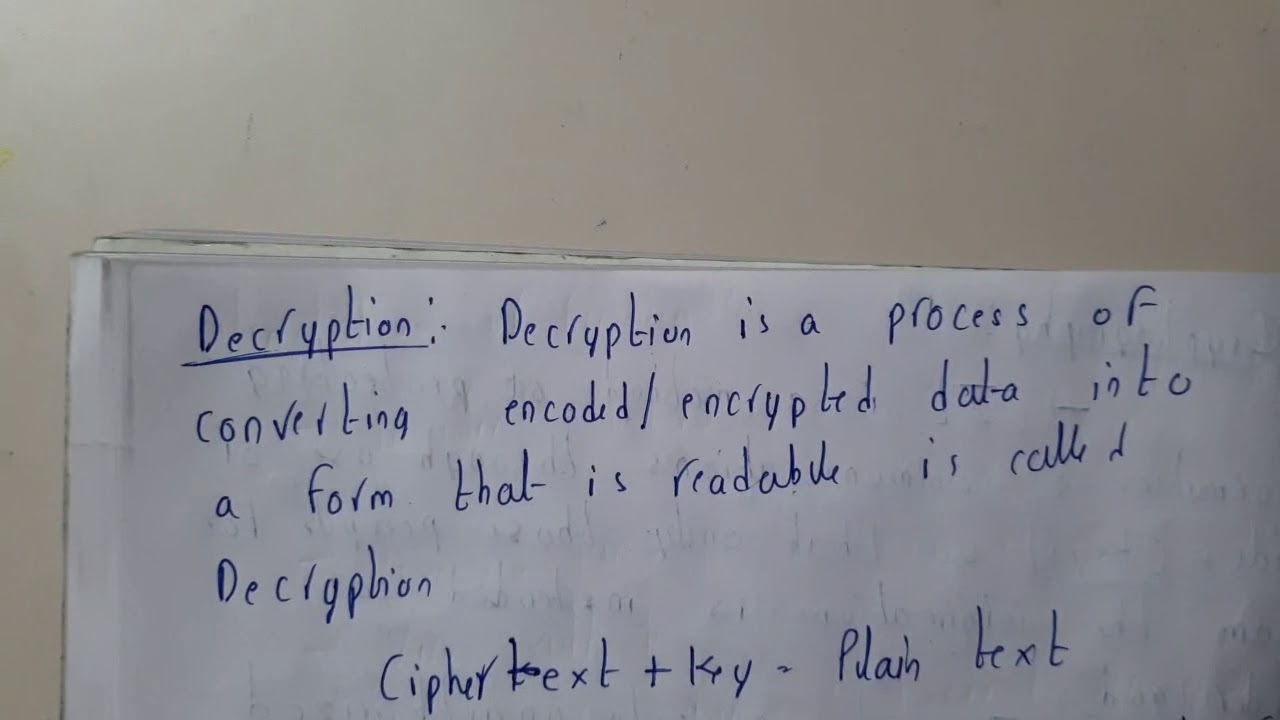 Decryption: Decryption is a process of
converting encoded/encrypted data into
a form that is readable is called
Decryption
Ciphertext + key = Plain text